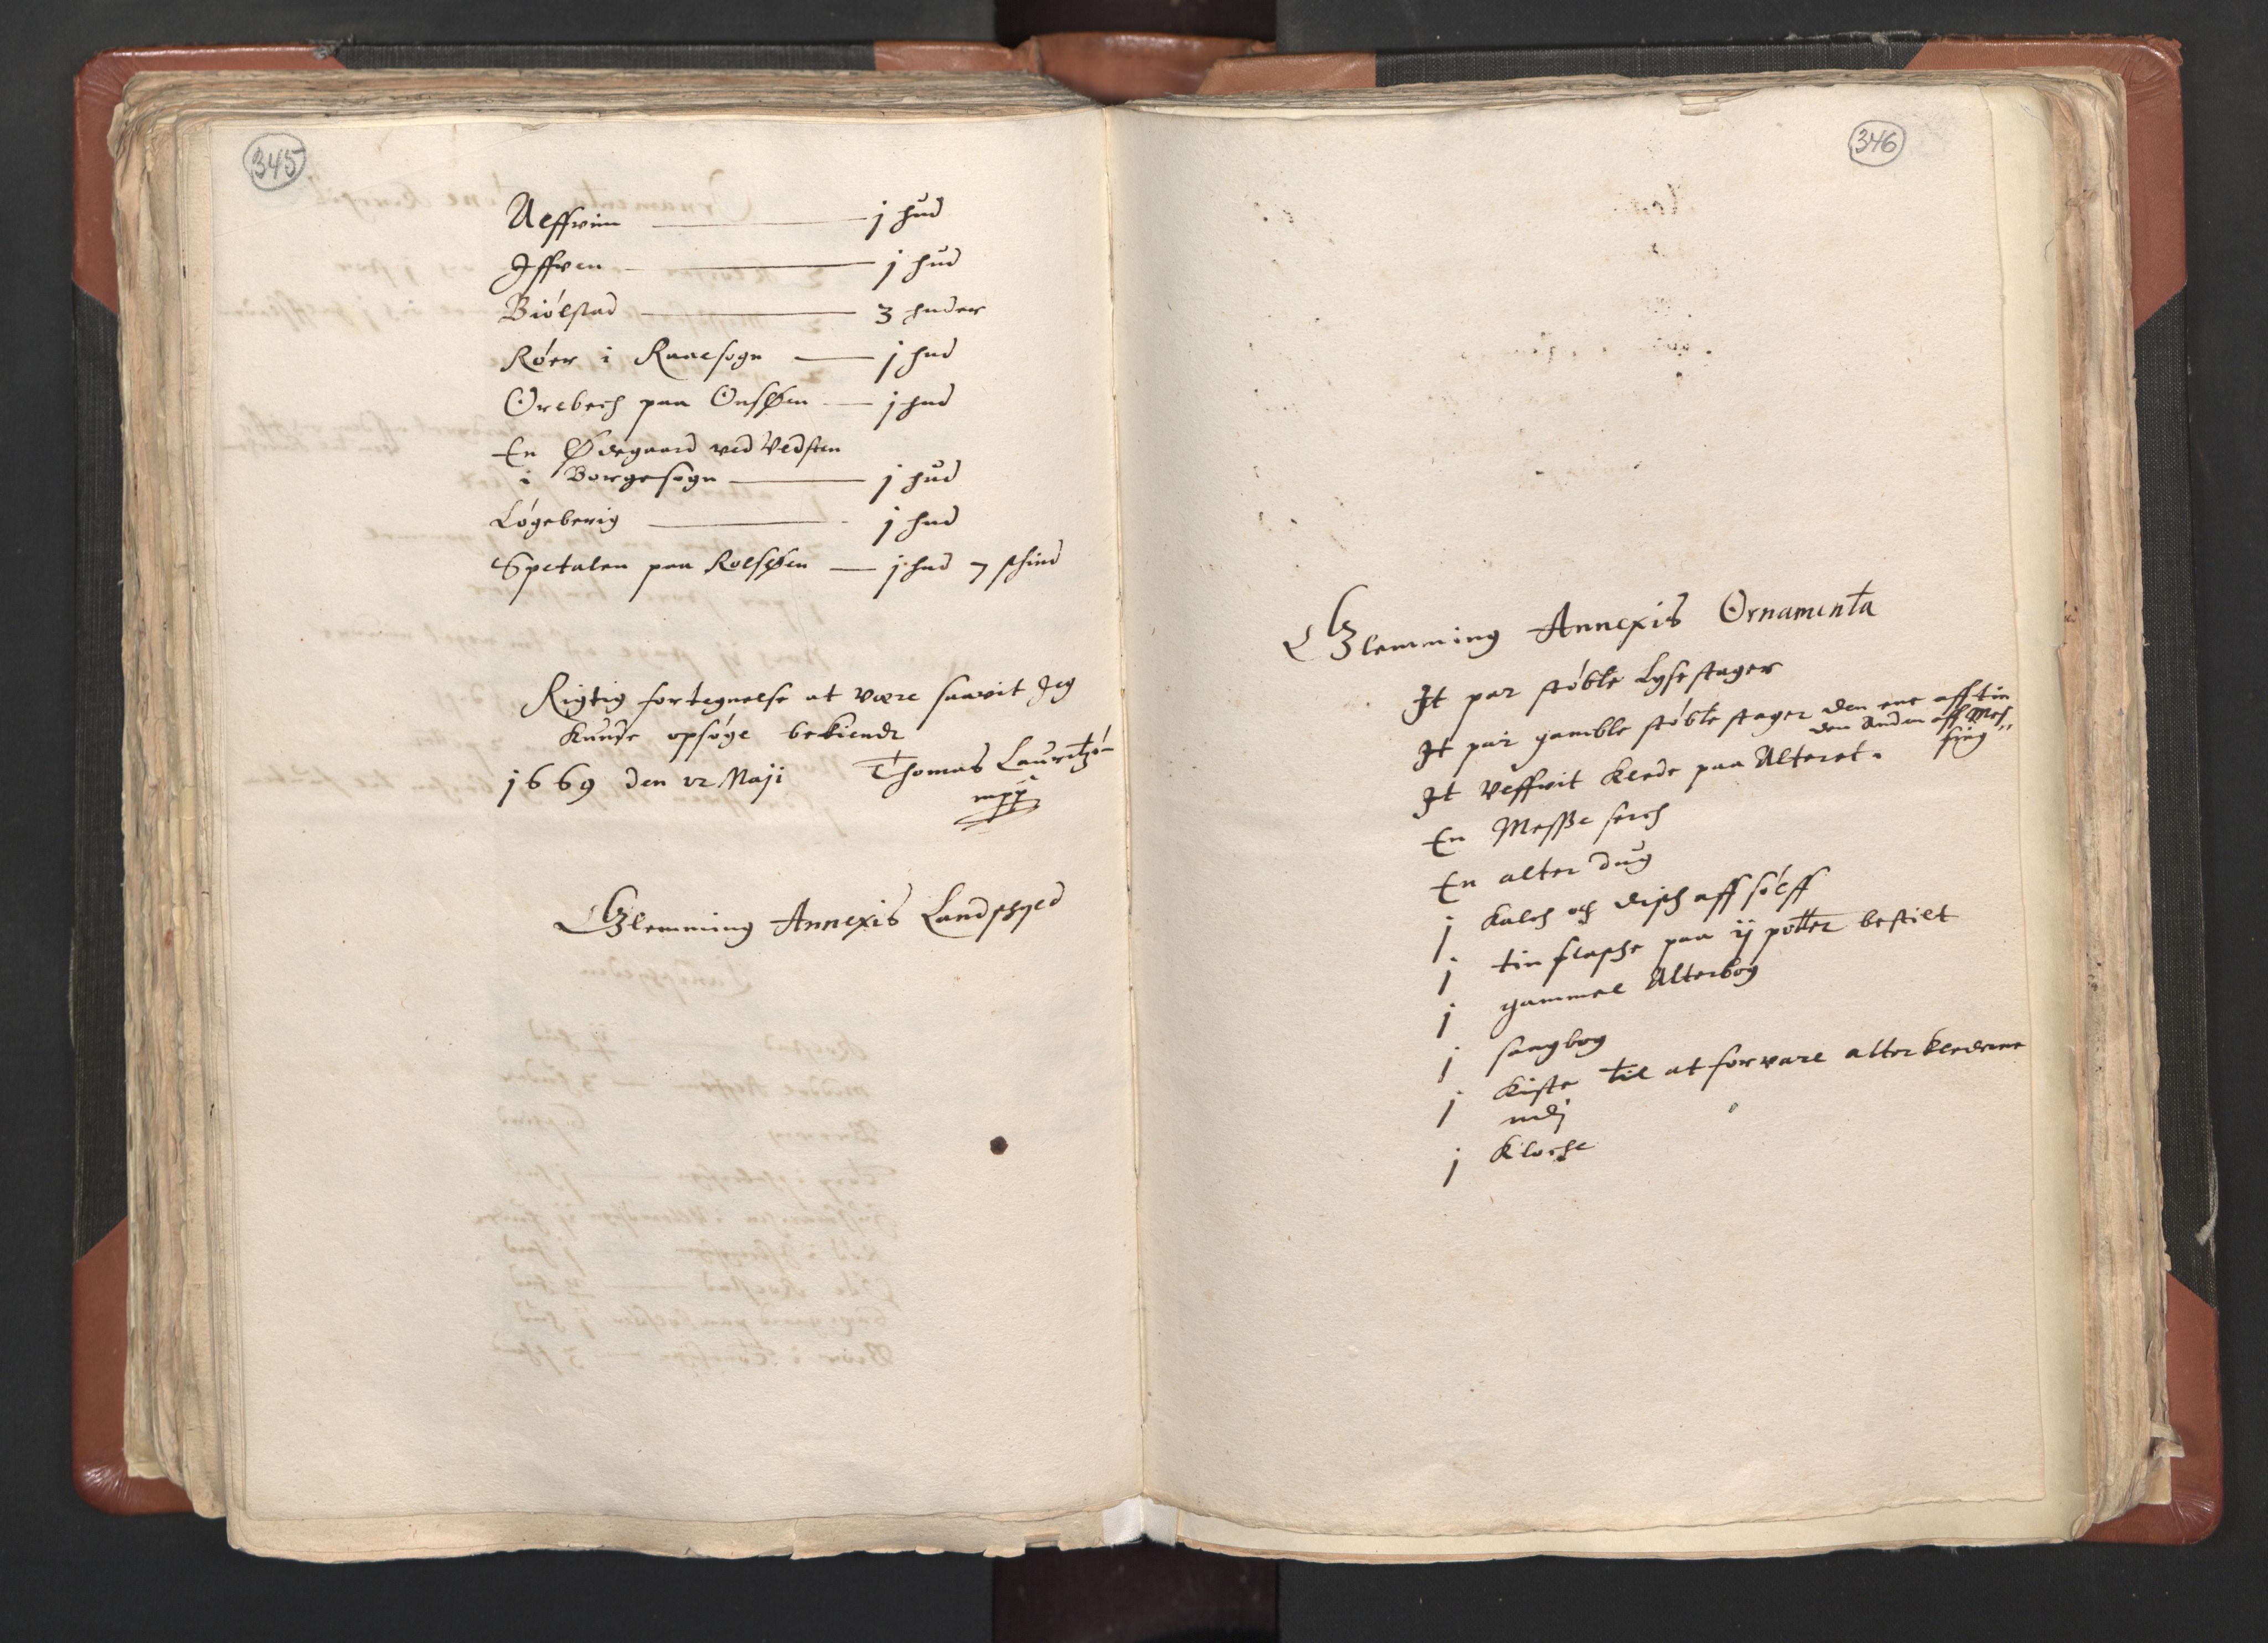 345
Ueffwim j hud
Iffwen j hud
Biólstad 3 huder
Róer i Raaesogn j hud
Orebech paa Onsøen j hud
En Ødegaard ved Vedsten
i Borgesogn j hud
Lógeberig j hud
Spetalen paa Rolsøen j hud 7 schind
Rigtig fortegnelse at være saavit Jeg
Kunde opsóge bekiender
1669 den 12 Maji Thomas Lauritzón
mpp
Glemming Annexis Landschyld
346
Glemming Annexis Ornamenta
It par stóbte Lysestager
It par gamble stóbte stager den ene aff tin
den Anden aff Mes
sing
It Veffwit Klede paa Alteret.
En Messe serch
En alter dug
j Kalch och disch aff sólff
j tin flasche paa ij potter bestilt
j gammel Alterbog
j sangbog
j Kiste til at forvare alterklederne
udj
j Klocke